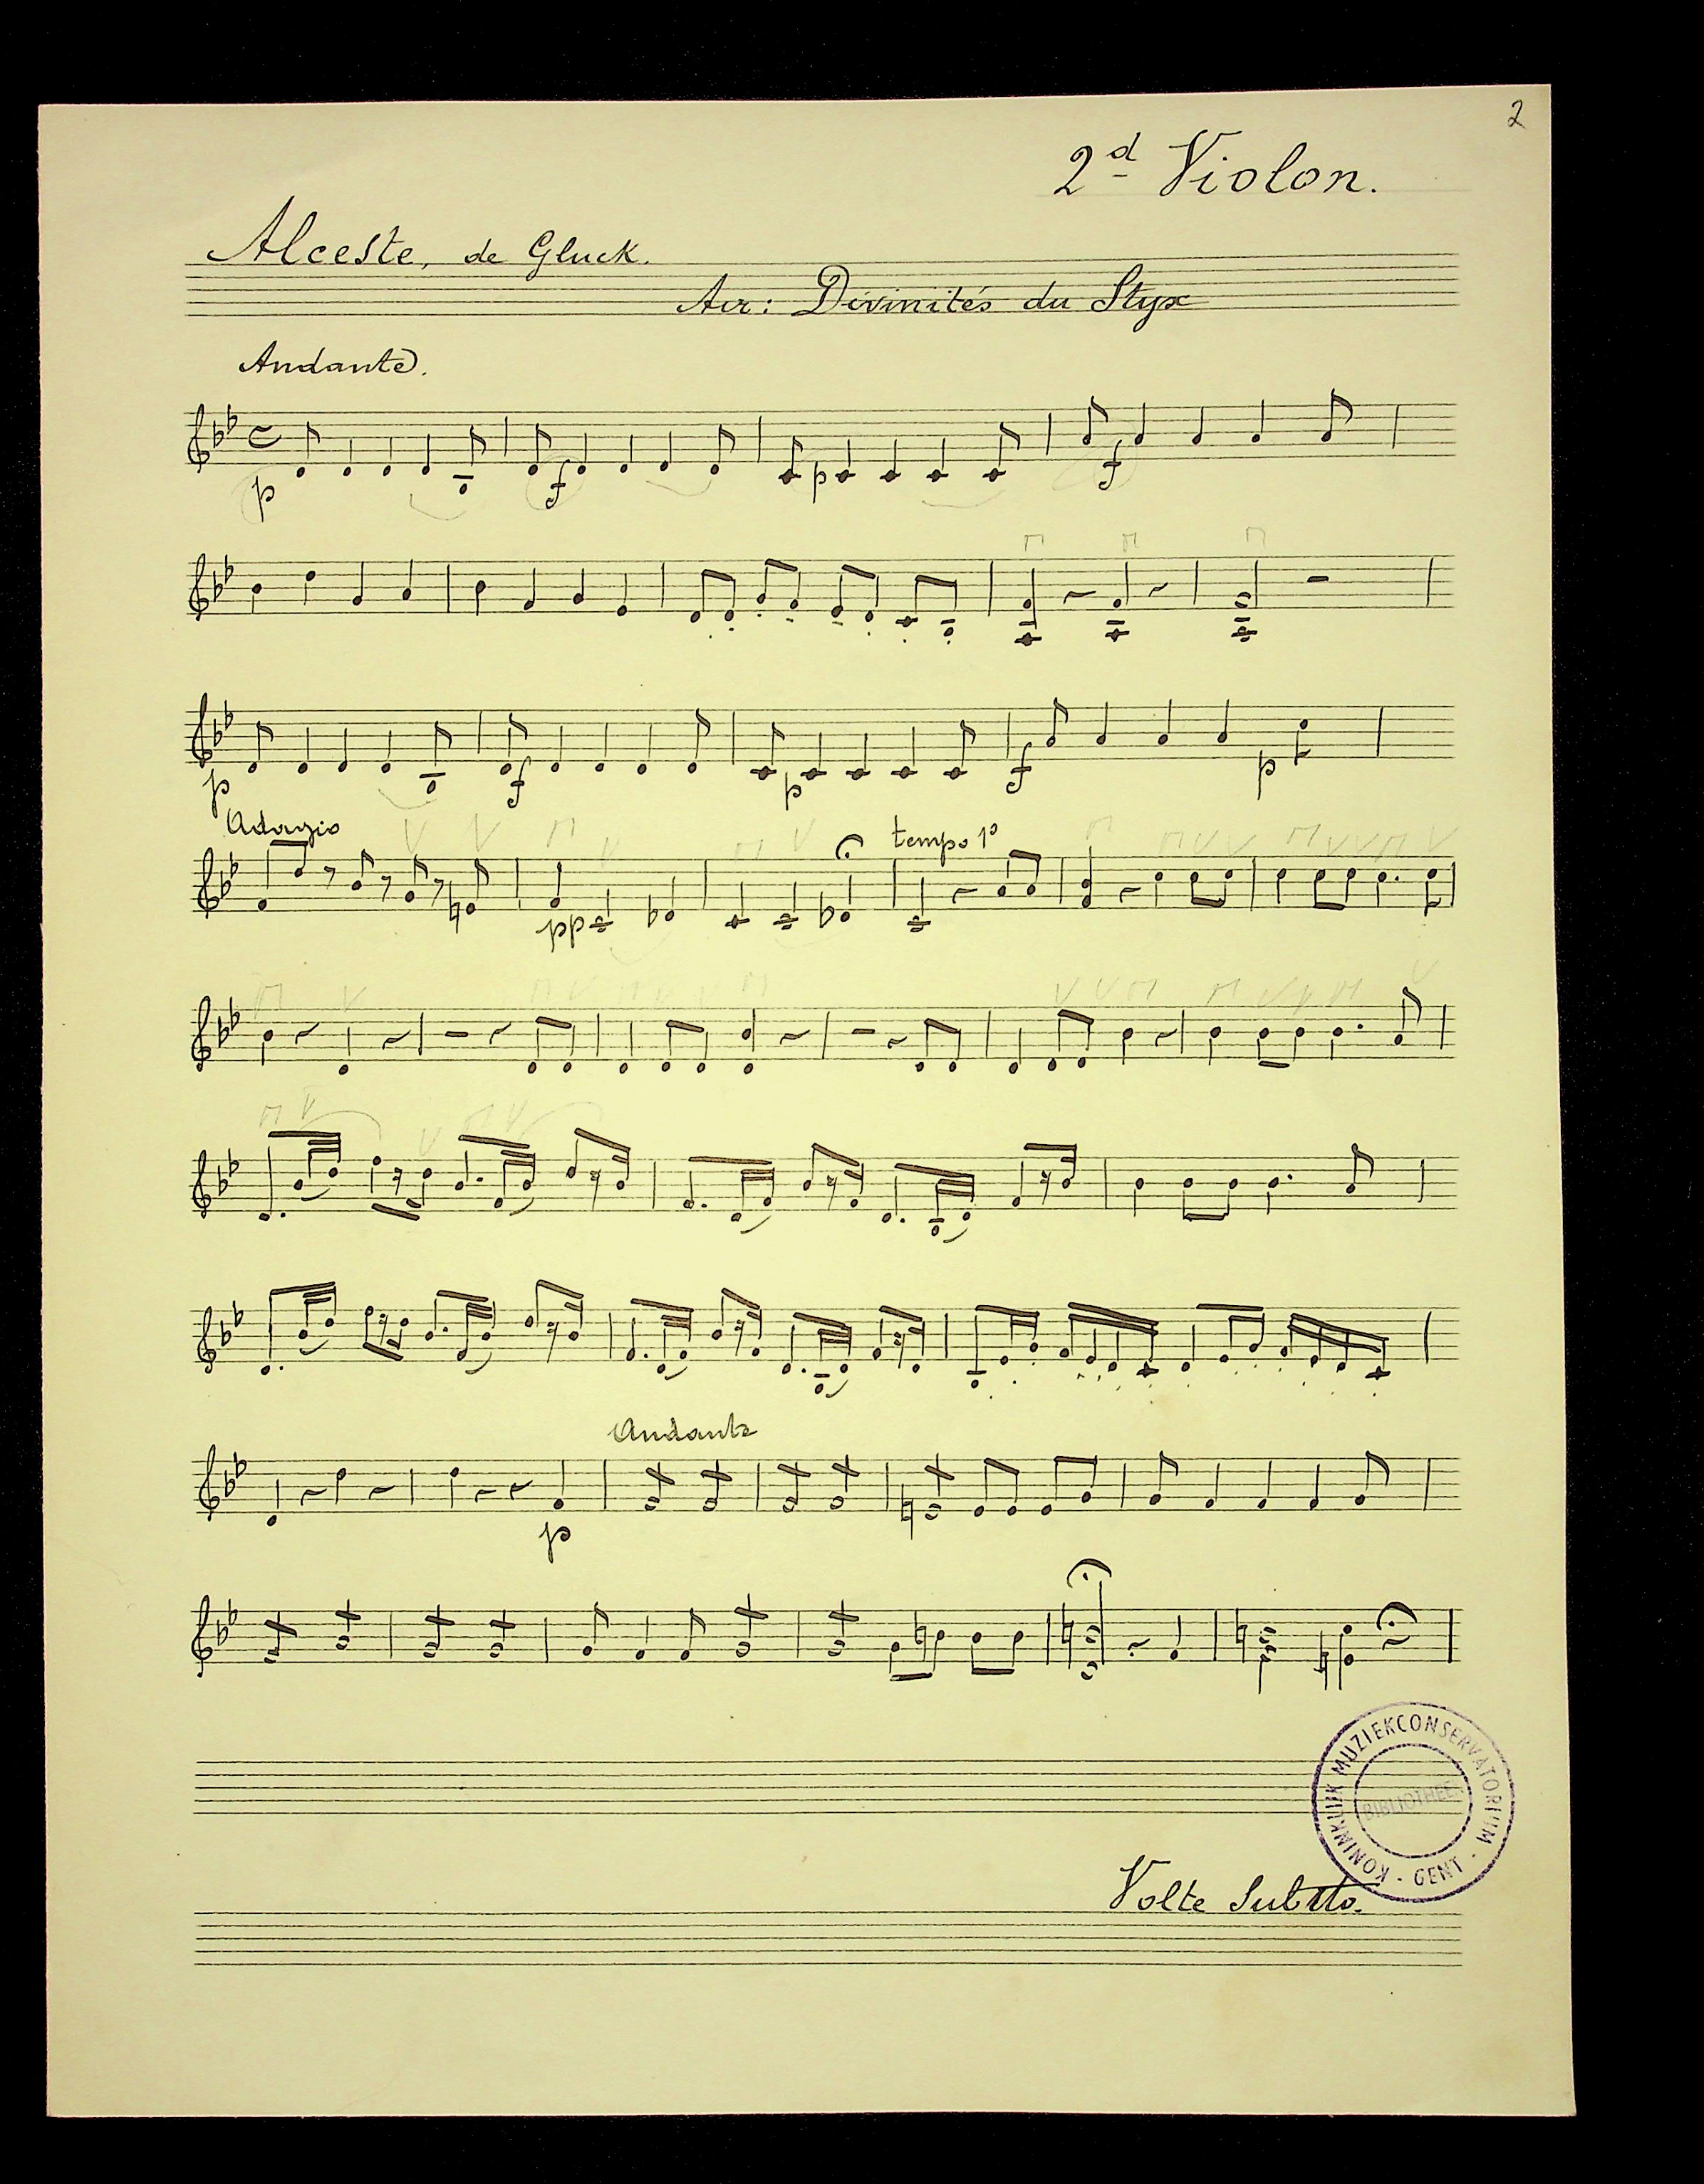 2
2d Violon.
Alceste, de Gluck.
Air: Divinités du Styx
Andante.
p f p f
p f p f p
Adagio tempo 1º
pp
Andante
p
KONINKLIJK MUZIEKCONSERVATORIUM - GENT -
BIBLIOTHEEK
Volte Subito.